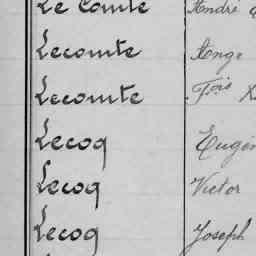 Le Comte André
Lecomte Ange
Lecomte Fois
Lecoq Eugèn
Lecoq Victor
Lecoq Joseph